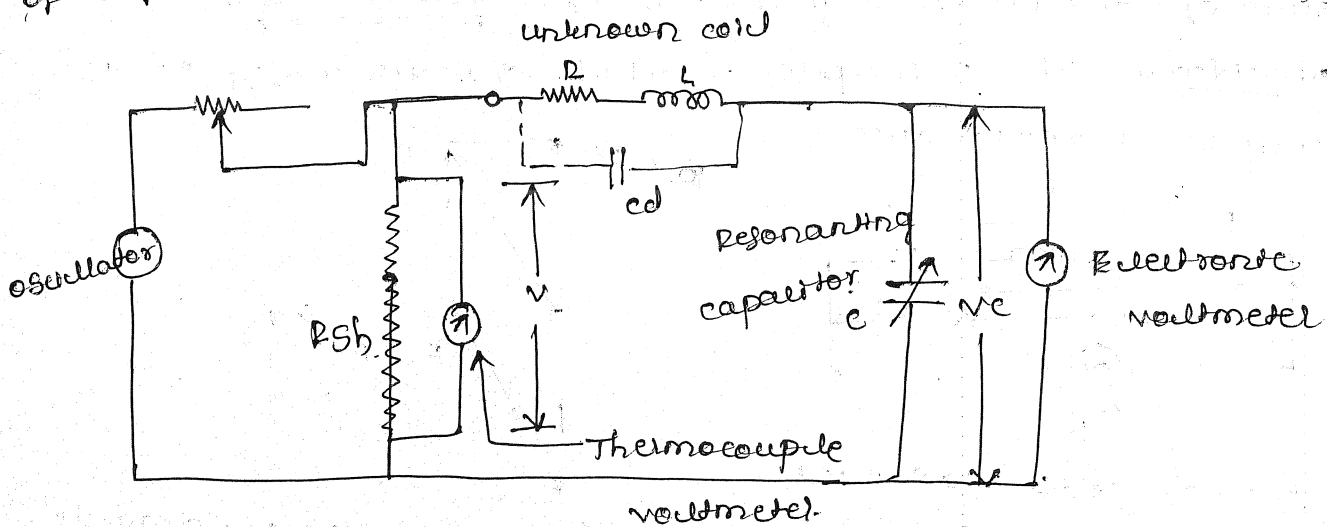 of
unknown coil
R L
cd
oscillator
Rsh
V
Resonanting
capacitor
c
Vc
Electronic
voltmeter
Thermocouple
voltmeter.